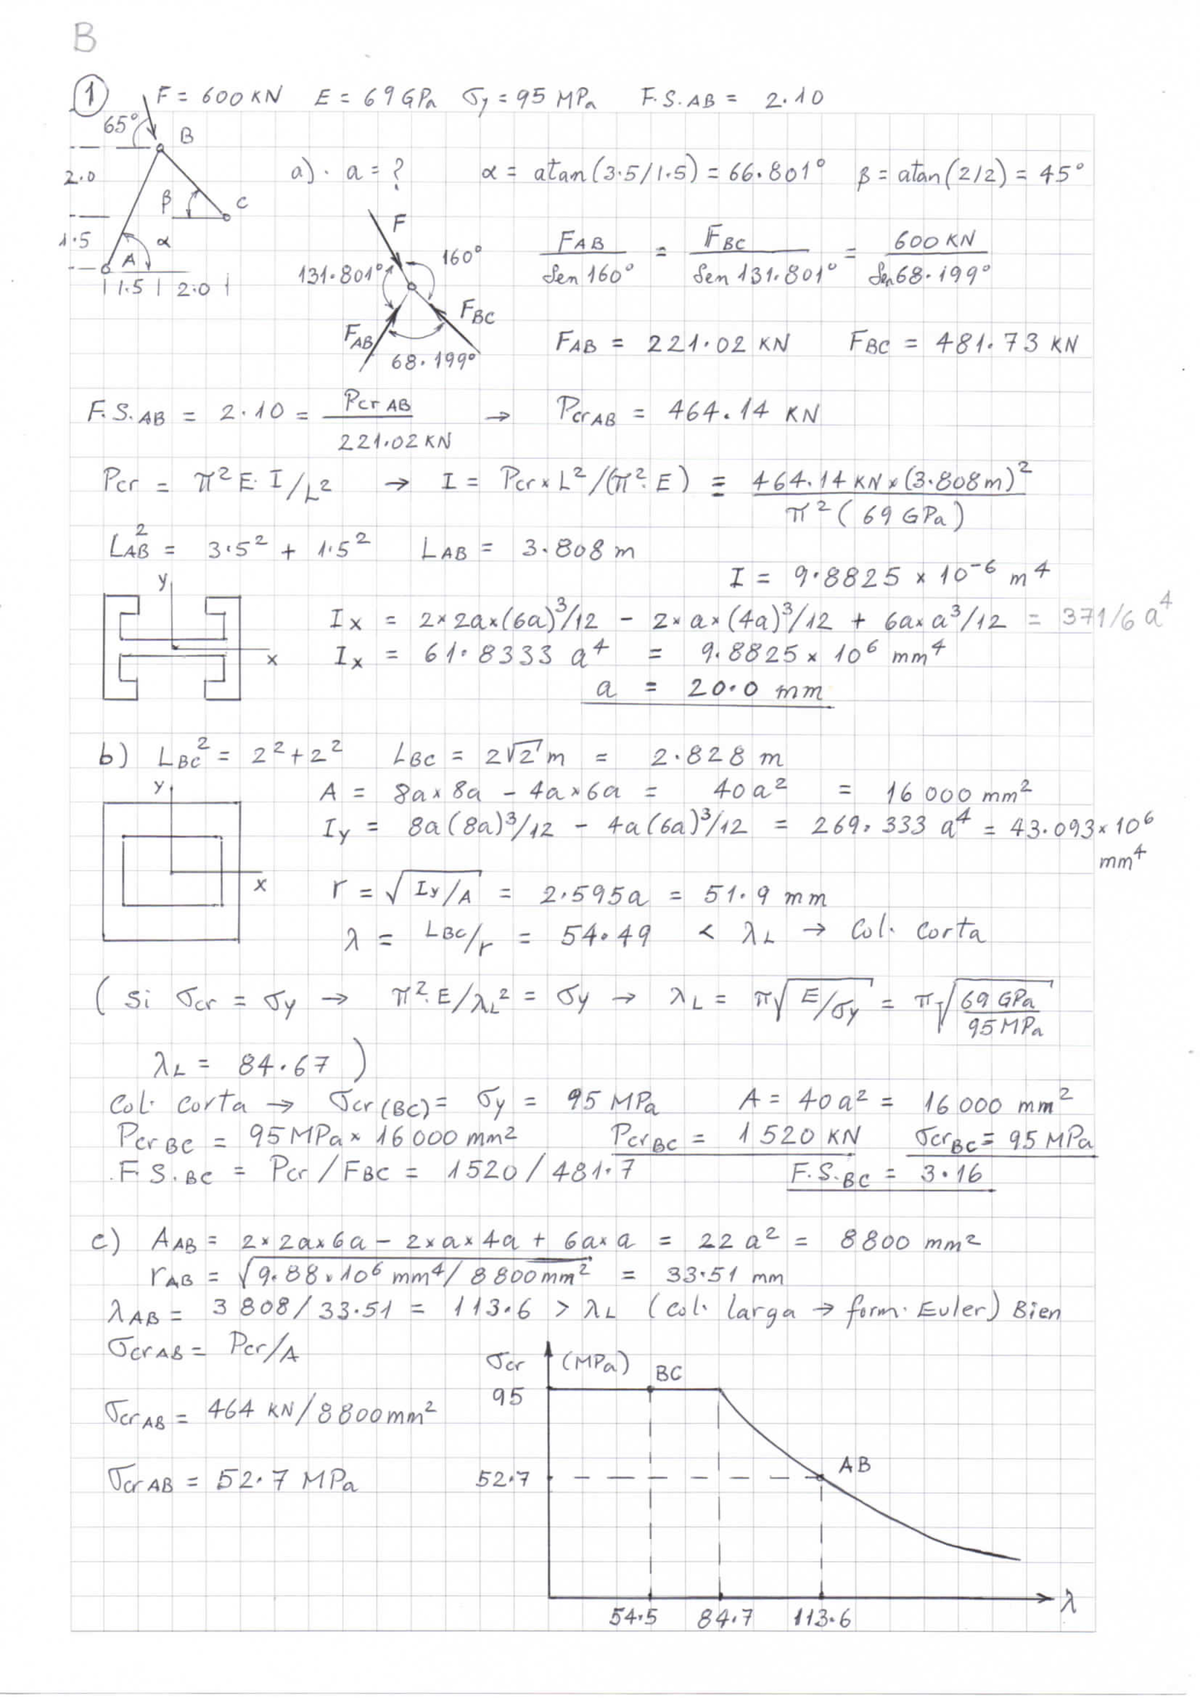 B
① F = 600 KN E = 69 GPa σy = 95 MPa F.S.AB = 2.10
65° B
2.0 β C
1.5 α A
1.5 2.0
a). a = ? α = atan(3.5/1.5) = 66.801° β = atan(2/2) = 45°
F 131.801° 160° FAB FBC 68.199°
FAB / Sen 160° = FBC / Sen 131.801° = 600 KN / Sen 68.199°
FAB = 221.02 KN FBC = 481.73 KN
F.S.AB = 2.10 = PcrAB / 221.02 KN → PcrAB = 464.14 KN
Pcr = π² E·I/L² → I = Pcr × L²/(π²·E) = 464.14 KN × (3.808m)² / π² (69 GPa)
LAB² = 3.5² + 1.5² LAB = 3.808 m
I = 9.8825 × 10⁻⁶ m⁴
y x
Ix = 2×2a×(6a)³/12 - 2×a×(4a)³/12 + 6a×a³/12 = 371/6 a⁴
Ix = 61.8333 a⁴ = 9.8825 × 10⁶ mm⁴
a = 20.0 mm
b) LBC² = 2² + 2² LBC = 2√2 m = 2.828 m
y x
A = 8a×8a - 4a×6a = 40a² = 16 000 mm²
Iy = 8a(8a)³/12 - 4a(6a)³/12 = 269.333 a⁴ = 43.093×10⁶ mm⁴
r = √Iy/A = 2.595a = 51.9 mm
λ = LBC/r = 54.49 < λL → Col. corta
( si σcr = σy → π²·E/λL² = σy → λL = π√E/σy = π√69 GPa / 95 MPa
λL = 84.67 )
Col. corta → σcr(BC) = σy = 95 MPa A = 40a² = 16 000 mm²
PcrBC = 95 MPa × 16 000 mm² PcrBC = 1 520 KN σcrBC = 95 MPa
F.S.BC = Pcr / FBC = 1520 / 481.7 F.S.BC = 3.16
c) AAB = 2×2a×6a - 2×a×4a + 6a×a = 22 a² = 8800 mm²
rAB = √9.88×10⁶ mm⁴/8800mm² = 33.51 mm
λAB = 3 808/33.51 = 113.6 > λL (Col. larga → form. Euler) Bien
σcrAB = Pcr/A
σcrAB = 464 KN/8800mm²
σcrAB = 52.7 MPa
σcr (MPa) BC
95
AB
52.7
54.5 84.7 113.6 λ